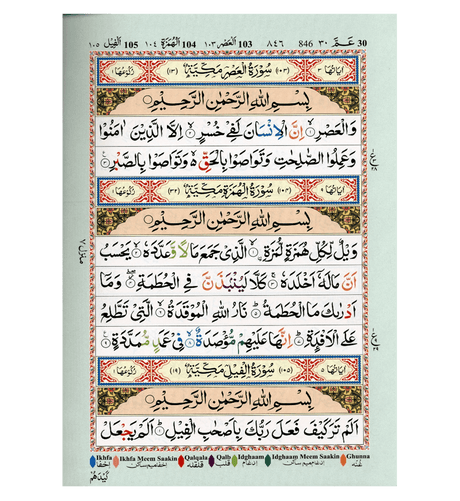 30 عَمَّ ٣٠ 846 ٨٤٦ 103 العصر ١٠٣ 104 الهمزة ١٠٤ 105 الفيل ١٠٥
اٰيَاتُهَا ٣ (١٠٣) سُوْرَةُ الْعَصْرِ مَكِّيَّةٌ (١٣) رُكُوْعُهَا ١
بِسْمِ اللّٰهِ الرَّحْمٰنِ الرَّحِيْمِ
وَالْعَصْرِ ۙ اِنَّ الْاِنْسَانَ لَفِيْ خُسْرٍ ۙ اِلَّا الَّذِيْنَ اٰمَنُوْا
وَعَمِلُوا الصّٰلِحٰتِ وَتَوَاصَوْا بِالْحَقِّ ۙ وَتَوَاصَوْا بِالصَّبْرِ
اٰيَاتُهَا ٩ (١٠٤) سُوْرَةُ الْهُمَزَةِ مَكِّيَّةٌ (٣٢) رُكُوْعُهَا ١
بِسْمِ اللّٰهِ الرَّحْمٰنِ الرَّحِيْمِ
وَيْلٌ لِّكُلِّ هُمَزَةٍ لُّمَزَةٍ ۙ الَّذِيْ جَمَعَ مَالًا وَّعَدَّدَهٗ ۙ يَحْسَبُ
اَنَّ مَالَهٗۤ اَخْلَدَهٗ ۚ كَلَّا لَيُنْۢبَذَنَّ فِي الْحُطَمَةِ ۖ وَمَاۤ
اَدْرٰىكَ مَا الْحُطَمَةُ ؕ نَارُ اللّٰهِ الْمُوْقَدَةُ ۙ الَّتِيْ تَطَّلِعُ
عَلَى الْاَفْـِٕدَةِ ؕ اِنَّهَا عَلَيْهِمْ مُّؤْصَدَةٌ ۙ فِيْ عَمَدٍ مُّمَدَّدَةٍ
اٰيَاتُهَا ٥ (١٠٥) سُوْرَةُ الْفِيْلِ مَكِّيَّةٌ (١٩) رُكُوْعُهَا ١
بِسْمِ اللّٰهِ الرَّحْمٰنِ الرَّحِيْمِ
اَلَمْ تَرَ كَيْفَ فَعَلَ رَبُّكَ بِاَصْحٰبِ الْفِيْلِ ؕ اَلَمْ يَجْعَلْ
Ikhfa Ikhfa Meem Saakin Qalqala Qalb Idghaam Idghaam Meem Saakin Ghunna
كَيْدَهُمْ
منزل ٧